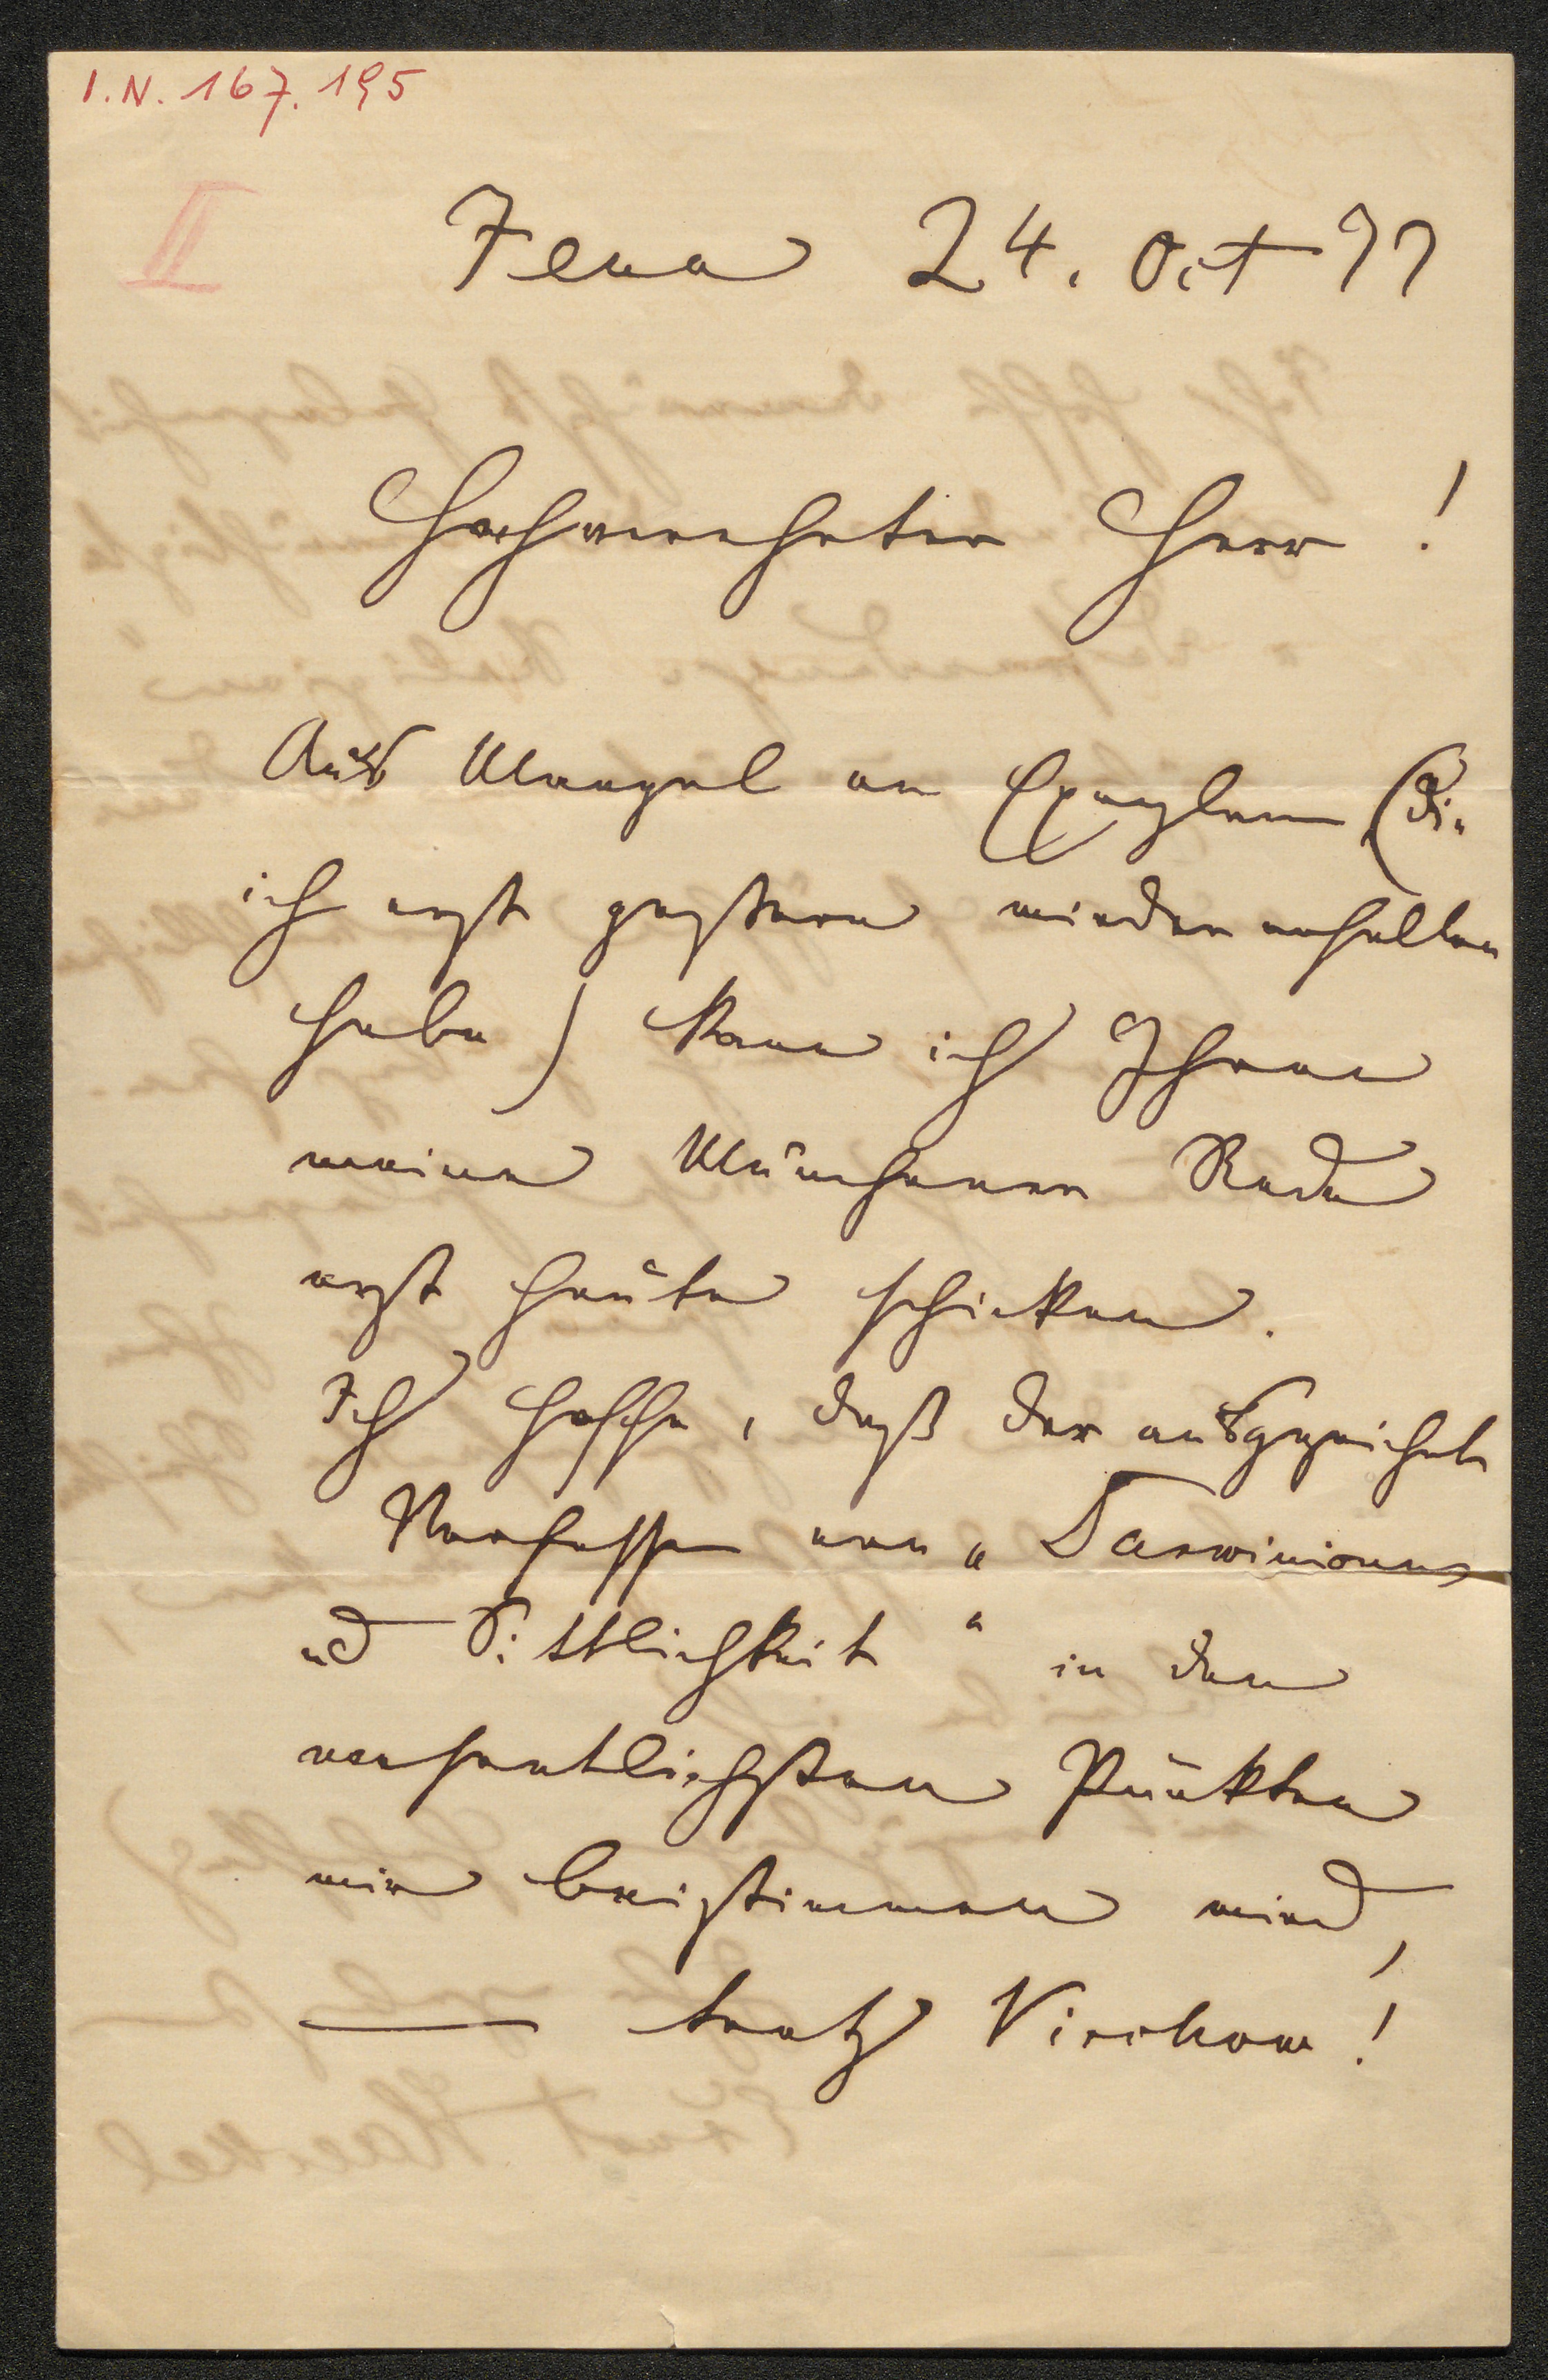 I.N. 167.195
II
Jena 24. Oct 77
Hochverehrter Herr!
Aus Mangel an Exemplaren (die
ich erst gestern wieder erhalten
habe) kann ich Ihnen
meine Münchener Rede
erst heute schicken.
Ich hoffe, daß der ausgezeichnete
Verfasser von „Darwinismus
und Sittlichkeit“ in den
wesentlichsten Punkten
mir beistimmen wird,
— trotz Virchow!